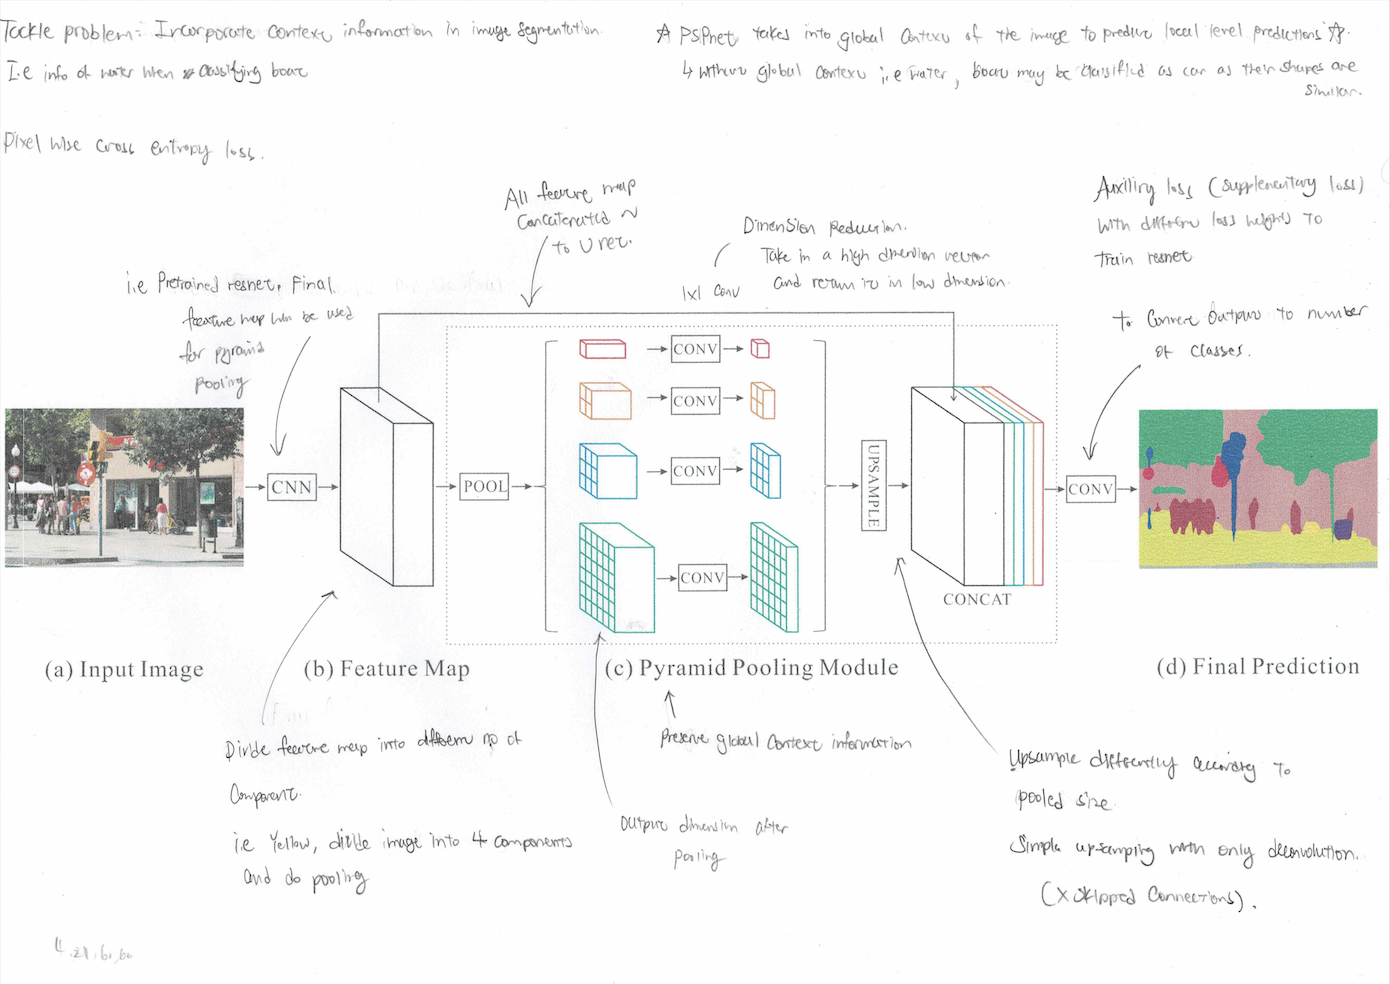 Tackle problem: Incorporate context information in image segmentation.
I.e info of water when classifying boat
☆ PSPnet takes into global context of the image to predict local level predictions ☆.
↳ without global context i.e water, boat may be classified as car as their shapes are
similar.
Pixel wise cross entropy loss.
All feature map
concatenated ~
to U net.
Dimension Reduction.
Take in a high dimension vector
and return it in low dimension.
1x1 conv
Auxiliry loss (supplementary loss)
with different loss weights to
train resnet
i.e Pretrained resnet. Final
feature map will be used
for pyramid
pooling
To convert outputs to number
of classes.
CNN
POOL
CONV
CONV
CONV
CONV
UPSAMPLE
CONCAT
CONV
(a) Input Image
(b) Feature Map
(c) Pyramid Pooling Module
(d) Final Prediction
Divide feature map into different no of
component.
i.e Yellow, divide image into 4 components
and do pooling
Preserve global context information
Output dimension after
pooling
Upsample differently according to
pooled size.
Simple upsampling with only deconvolution.
(X skipped connections).